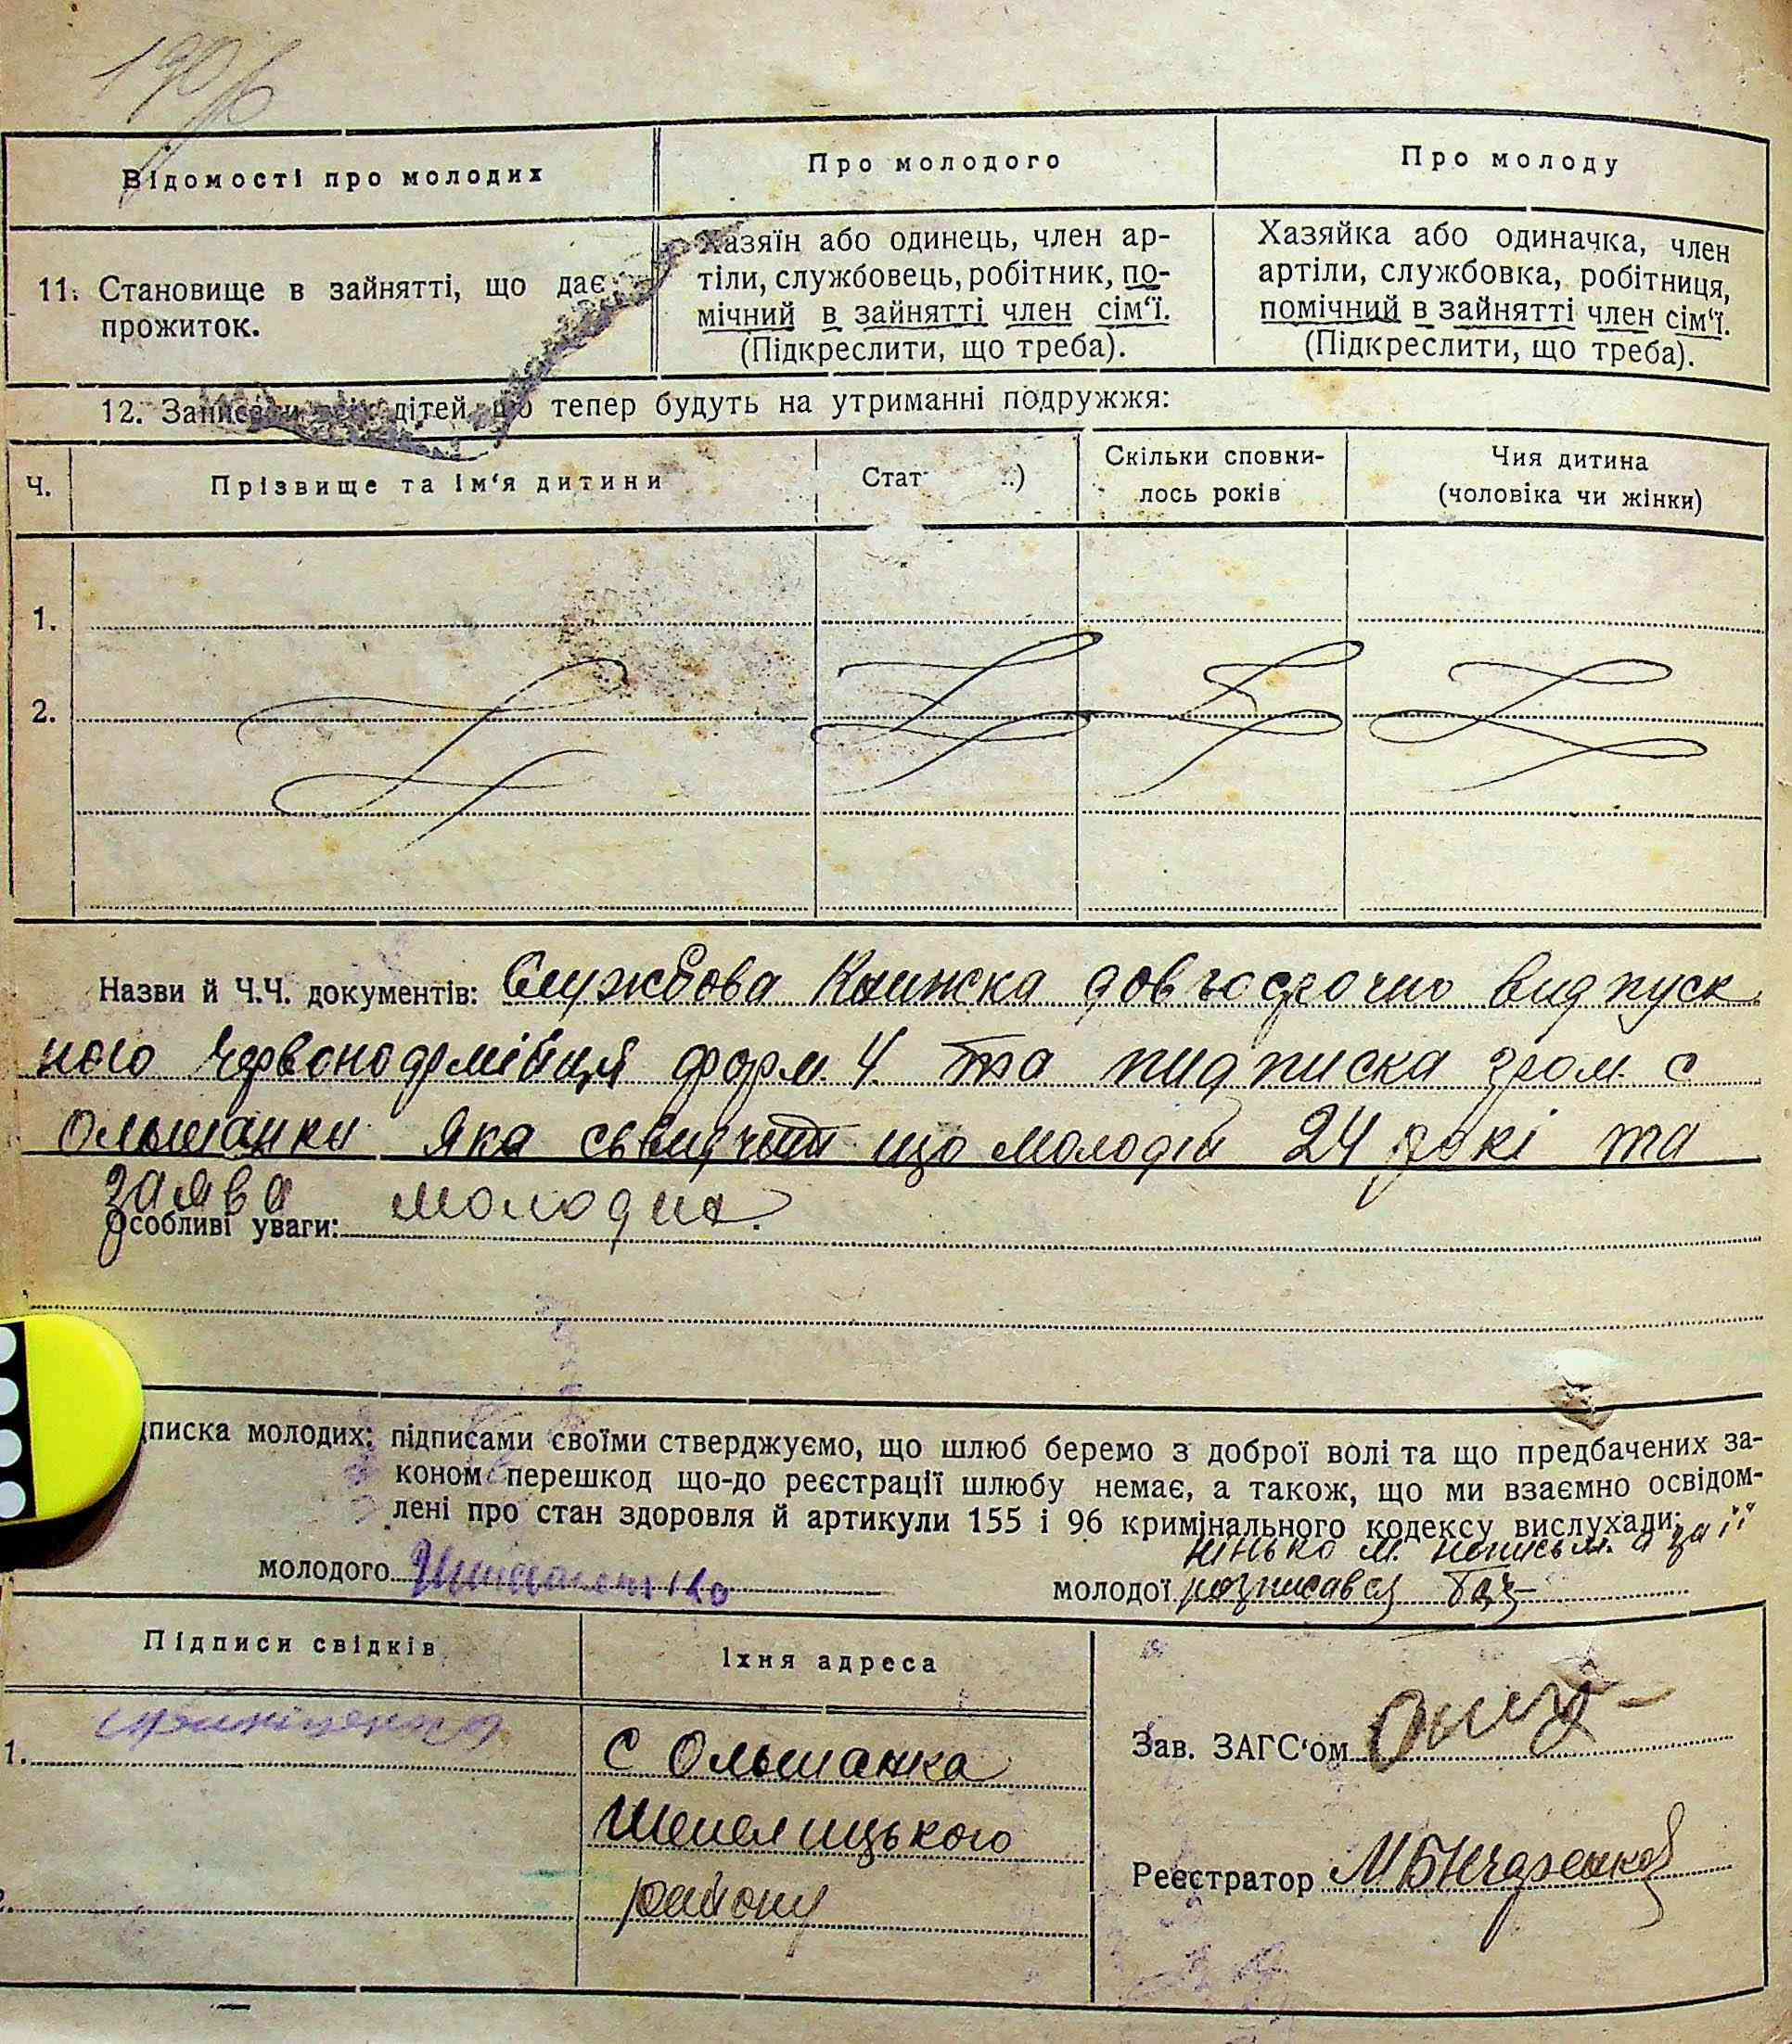 Відомості про молодих
Про молодого
Про молоду
11. Становище в зайнятті, що дає
прожиток.
Хазяїн або одинець, член ар-
тіли, службовець, робітник, по-
мічний в зайнятті член сім'ї.
(Підкреслити, що треба).
Хазяйка або одиначка, член
артіли, службовка, робітниця,
помічний в зайнятті член сім'ї.
(Підкреслити, що треба).
12. дітей, що тепер будуть на утриманні подружжя:
Ч.
Прізвище та ім'я дитини
Стат ..)
Скільки сповни-
лось років
Чия дитина
(чоловіка чи жінки)
1.
2.
Назви й Ч.Ч. документів: Службова Книжка довгосрочно видпуск
ного Червоноармійця форм. 4. та пидписка гром. с
Ольшанки яка свидчит що молодій 24 рокі та
заява молодих.
Особливі уваги:
писка молодих: підписами своїми стверджуємо, що шлюб беремо з доброї волі та що предбачених за-
коном перешкод що-до реєстрації шлюбу немає, а також, що ми взаємно освідом-
лені про стан здоровля й артикули 155 і 96 кримінального кодексу вислухали:
неписьм. а за її
молодого
молодої розписався
Підписи свідків
Їхня адреса
1.
С Ольшанка
Шепелицького
району
Зав. ЗАГС'ом
Реєстратор